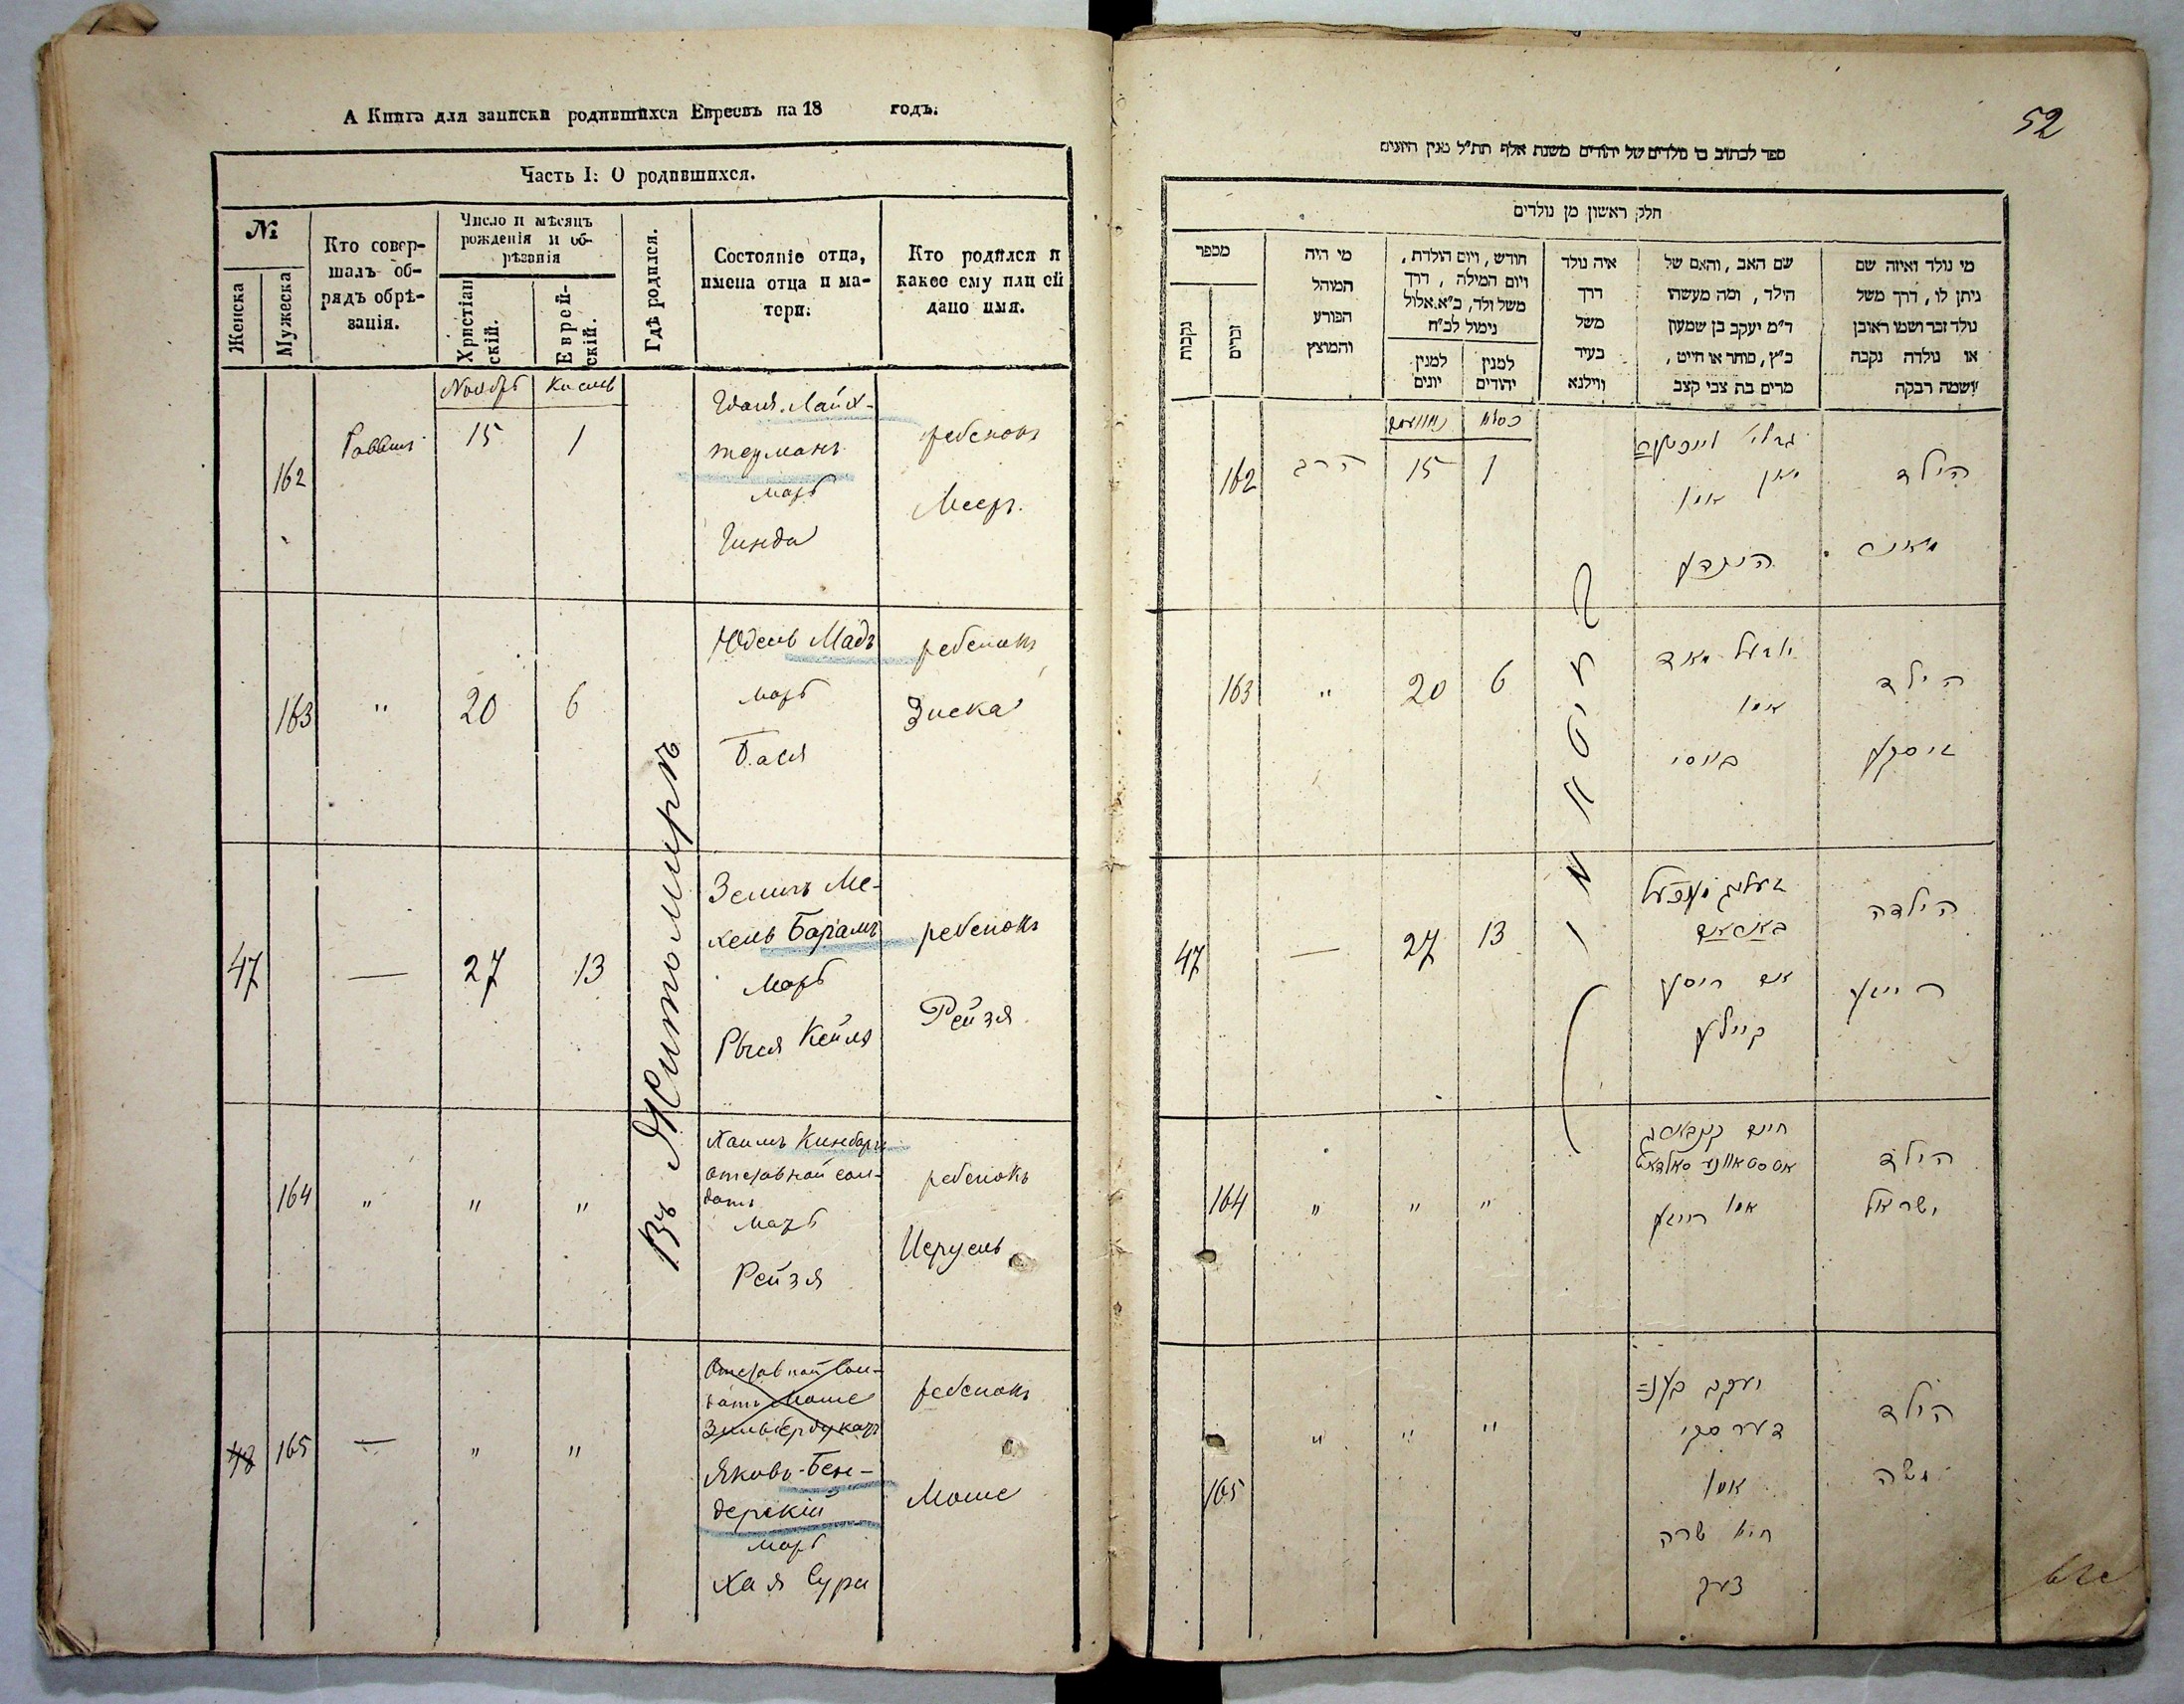 А Книга для записки родившихся Евреевъ на 18 годъ.
Часть I: О родившихся.
№
Женска
Мужеска
Кто совер-
шалъ об-
рядъ обрѣ-
занія.
Число и мѣсяцъ
рожденія и об-
рѣзанія
Христіан
скій.
Еврей-
скій.
Гдѣ родился.
Состояніе отца,
имена отца и ма-
тери.
Кто родился и
какое ему или ей
дано имя.
Ноябрь
162
15
1
терманъ
матъ
Гинда
ребенокъ
Мееръ.
163
"
20
6
Юдель Мадъ
матъ
Бася
ребенокъ
Зиска
47
—
27
13
Зелигъ Ме-
матъ
Рыся Кейля
ребенокъ
Рейзя
Въ Житомирѣ
164
"
"
"
Хаимъ
отставной сол-
датъ
матъ
Рейзя
ребенокъ
48
165
—
"
"
Отставной Сол-
датъ Моше
Яковъ-Бен-
дерскій
матъ
Хая Сура
ребенокъ
Моше
52
ספר לכתוב בו נולדים של יהודים משנת אלף תת״ל מנין היונים
חלק ראשון מן נולדים
מספר
נקבות
זכרים
מי היה
המוהל
הפורע
והמוצץ
חודש, ויום הולדת,
ויום המילה, דרך
משל ולד, כ״א.אלול
נימול לכ״ח
למנין
יונים
למנין
יהודים
איה נולד
דרך
משל
בעיר
ווילנא
שם האב, והאם של
הילד, ומה מעשהו
ד״מ יעקב בן שמעון
כ״ץ, סוחר או חייט,
מרים בת צבי קצב
מי נולד ואיזה שם
ניתן לו, דרך משל
נולד זכר ושמו ראובן
או נולדה נקבה
ושמה רבקה
כסלו
162
הרב
15
1
אמו
הינדע
הילד
מאיר
163
"
20
6
יודעל מאד
אמו
באסי
הילד
זיסקע
47
—
27
13
אם ריסע
קיילע
הילדה
רייזע
164
"
"
"
חיים
אמו רייזע
הילד
ישראל
165
"
"
"
יעקב בענ=
דערסקי
אמו
חיה שרה
הילד
משה